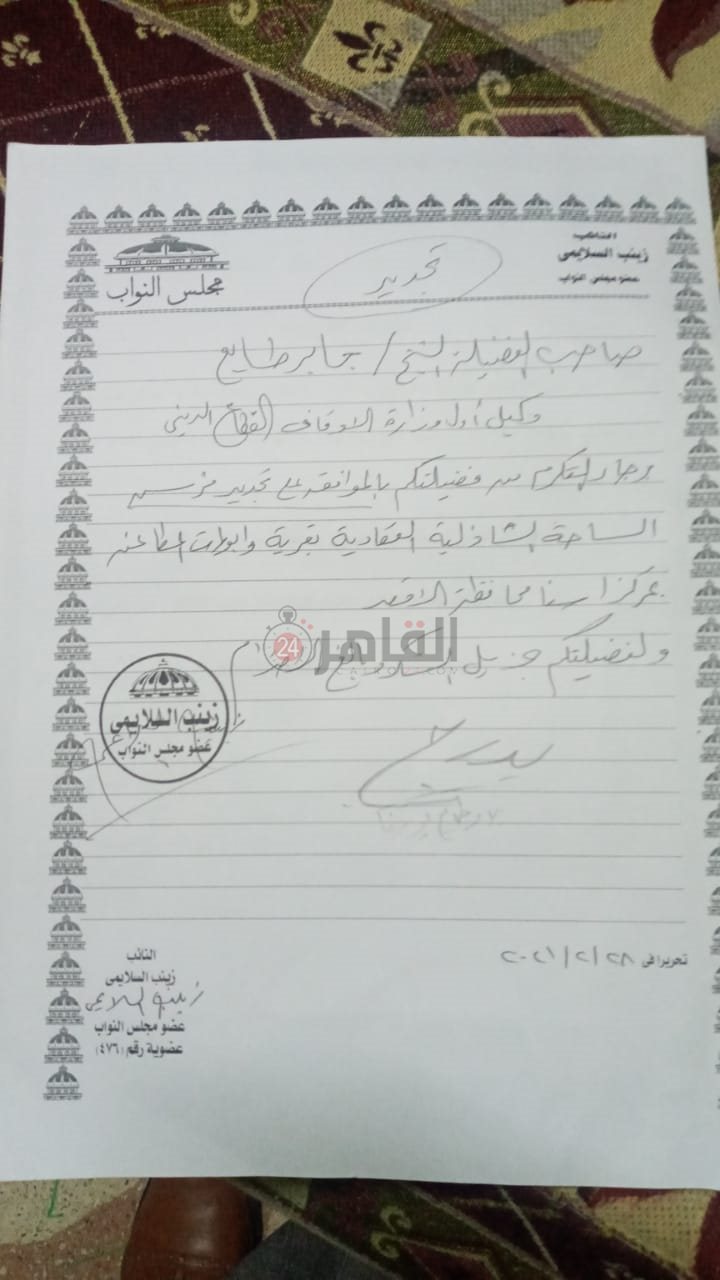 النائب
زينب السلايمى
عضو مجلس النواب
مجلس النواب
تجديد
صاحب الفضيلة الشيخ / جابر طايع
وكيل أول وزارة الاوقاف القطاع الدينى
برجاء التكرم من فضيلتكم بالموافقة على تجديد فرش
الساحة الشاذلية العقادية بقرية وابورات المطاعنه
بمركز اسنا محافظة الاقصر
ولفضيلتكم جزيل الشكر
القاهرة 24
CAIRO24.COM
زينب السلايمى
عضو مجلس النواب
تحريرا فى ٢٨ / ٢ / ٢٠٢١
النائب
زينب السلايمى
زينب السلايمى
عضو مجلس النواب
عضوية رقم (٤٧٦)